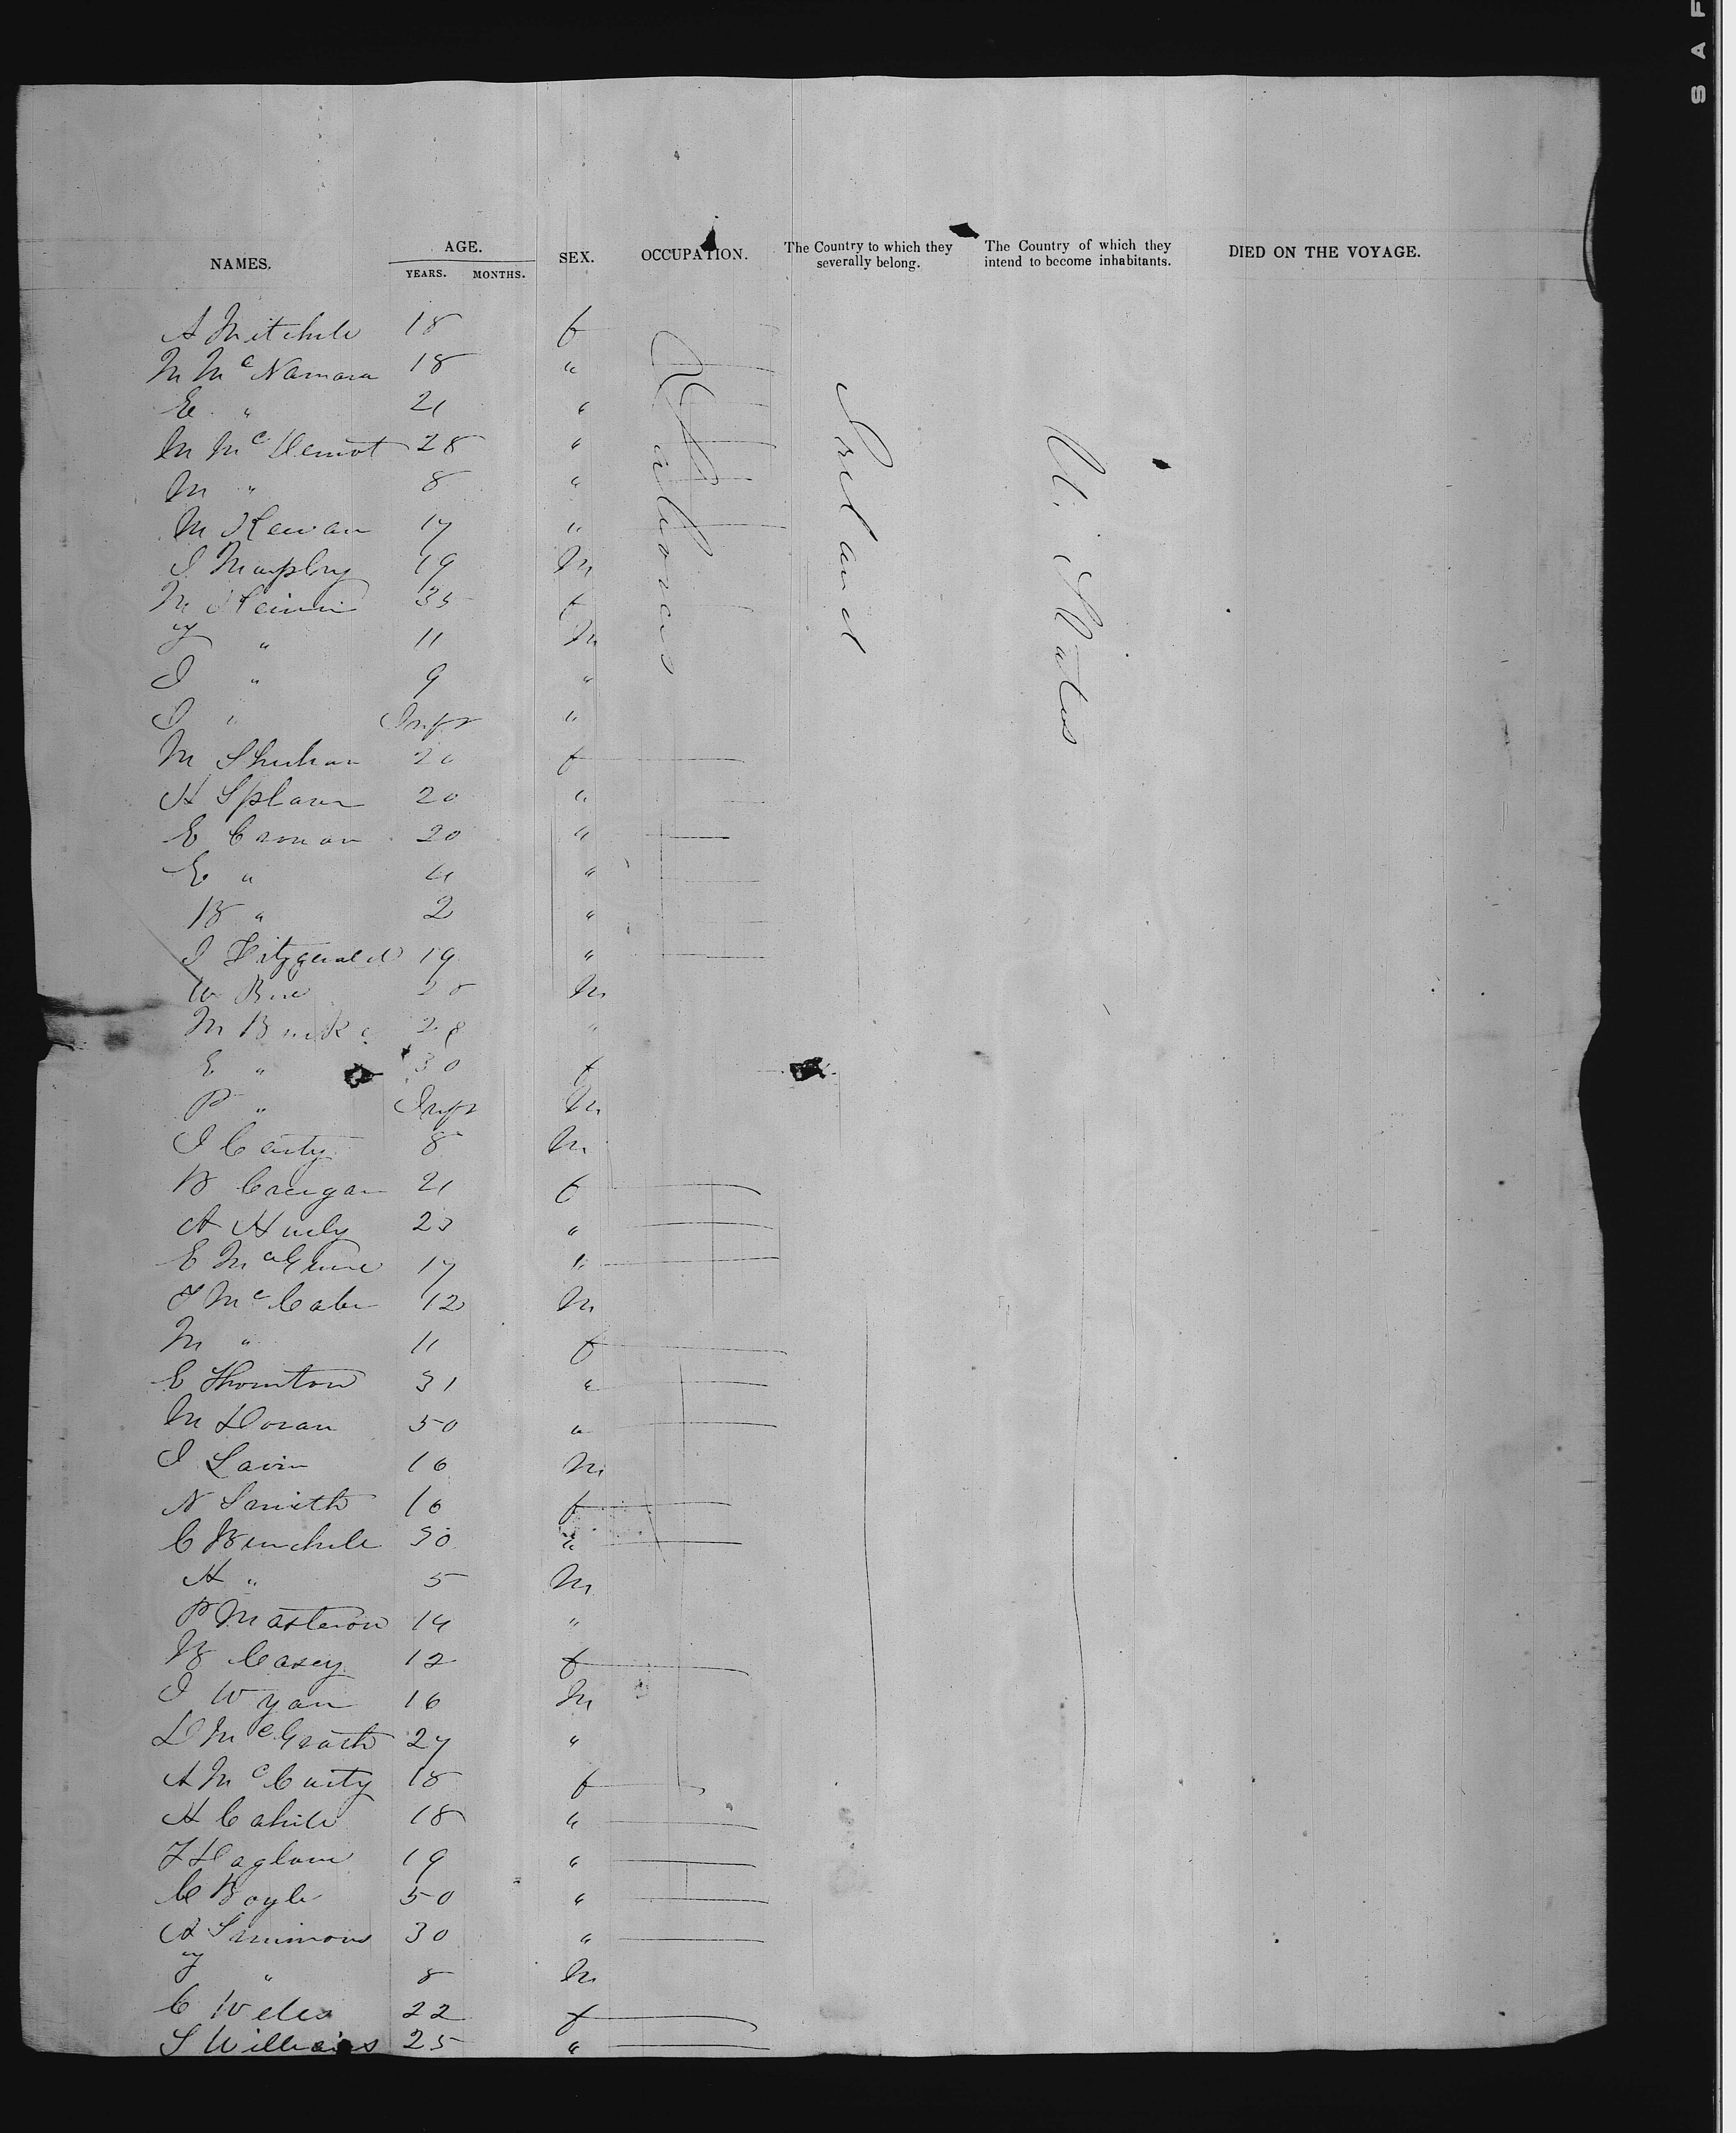 S A F
NAMES. AGE. YEARS. MONTHS. SEX. OCCUPATION. The Country to which they severally belong. The Country of which they intend to become inhabitants. DIED ON THE VOYAGE.
Ireland
U. States
A Mitchell 18 f
M McNamara 18 "
E " 21 "
M McDermot 28 "
M " 8 "
M 17 "
J Murphy 19 M
M 35 f
J " 11 M
J " 9 "
J " Inft "
M Shuhan 20 f
H Splann 20 "
E Cronan 20 "
E " 4 "
B " 2 "
J Fitzgerald 19 "
W 28 M
M Burke 28 "
E " 30 f
P " Inft M
J Carty 8 M
B Creigan 21 f
A Hurly 23 "
E McGuire 17 "
T McCabe 12 M
M " 11 f
E Thornton 31 "
M Doran 50 "
J Lavin 16 M
N Smith 16 f
C 30 "
H " 5 M
P Masterson 14 "
B Casey 12 f
J Wyan 16 M
D McGrath 27 "
A McCarty 18 f
H Cahill 18 "
19 "
C Boyle 50 "
A Simmons 30 "
J " 8 M
C Wells 22 f
S Williams 25 "